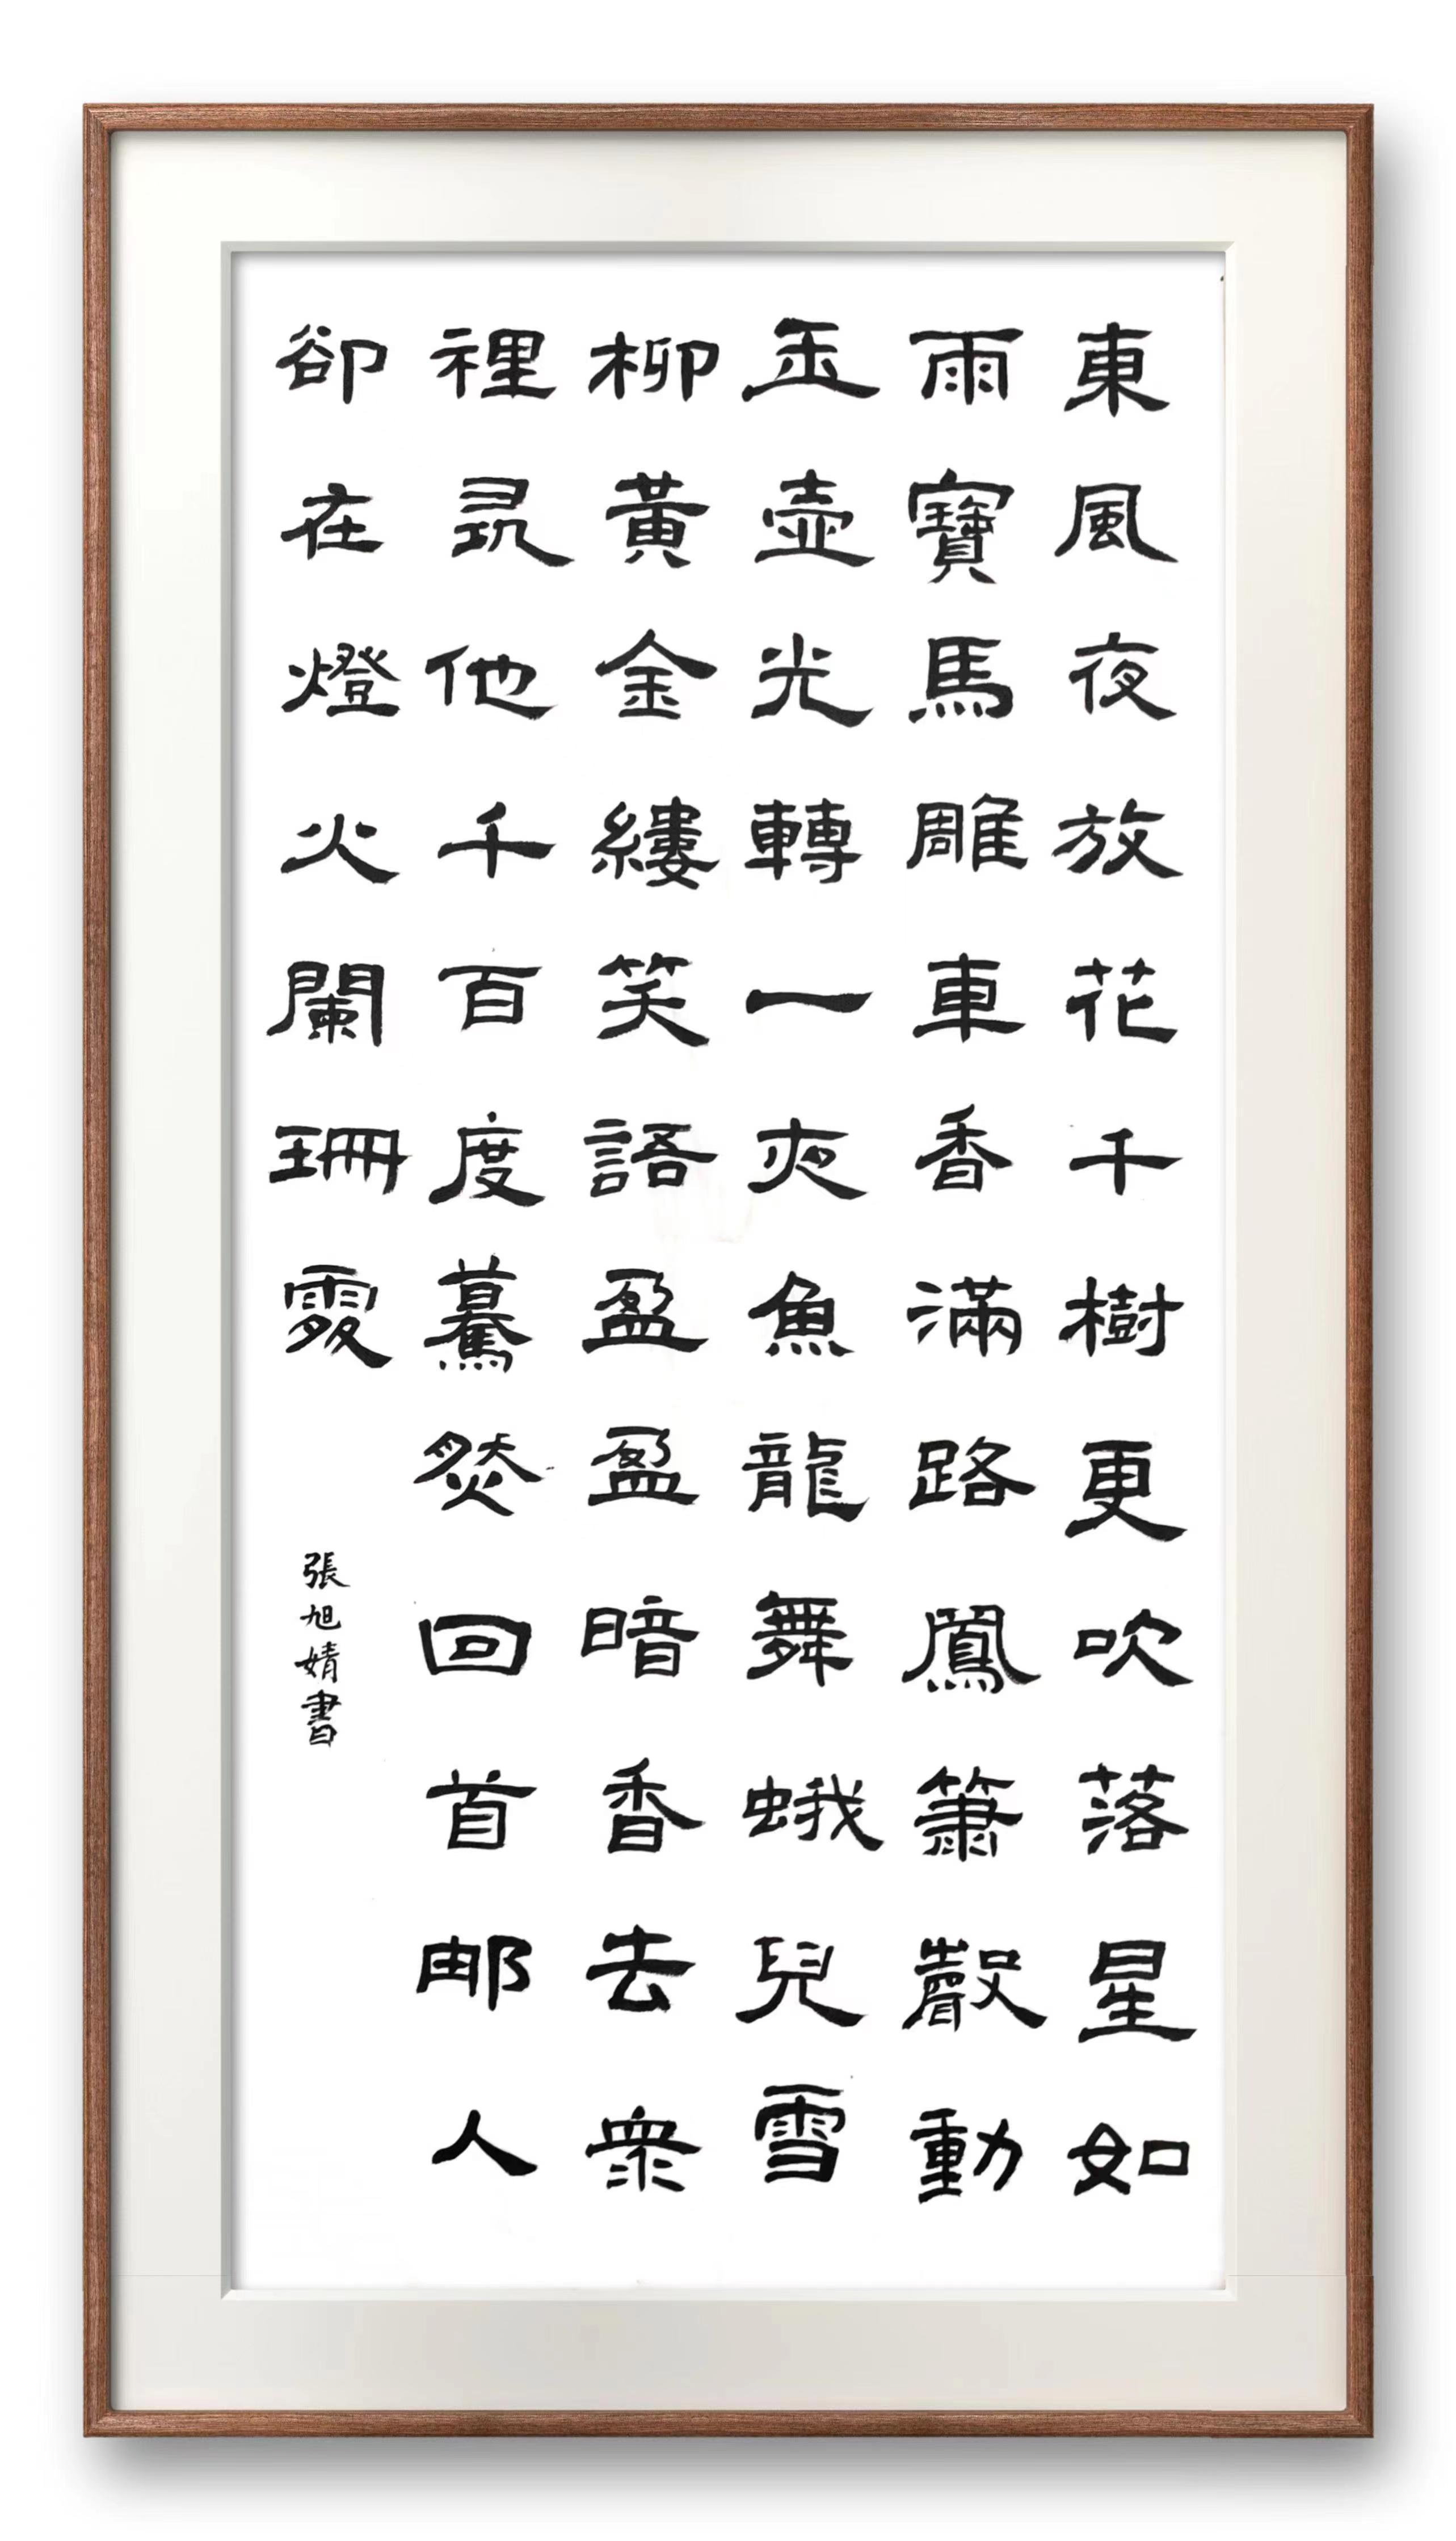 東風夜放花千樹更吹落星如
雨寶馬雕車香滿路鳳簫聲動
玉壺光轉一夜魚龍舞蛾兒雪
柳黃金縷笑語盈盈暗香去衆
裡尋他千百度驀然回首那人
卻在燈火闌珊處
張旭婧書